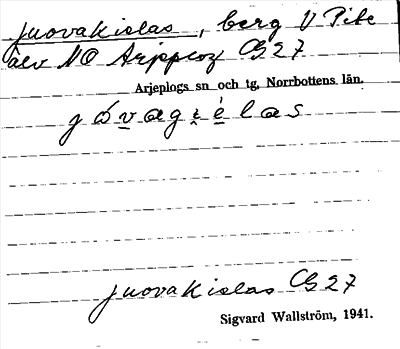 Juovakielas, berg V Pite
älv NO Arjeplog CG27
Arjeplogs sn och tg, Norrbottens län.
jóvagielas
Juovakielas CG27
Sigvard Wallström, 1941.